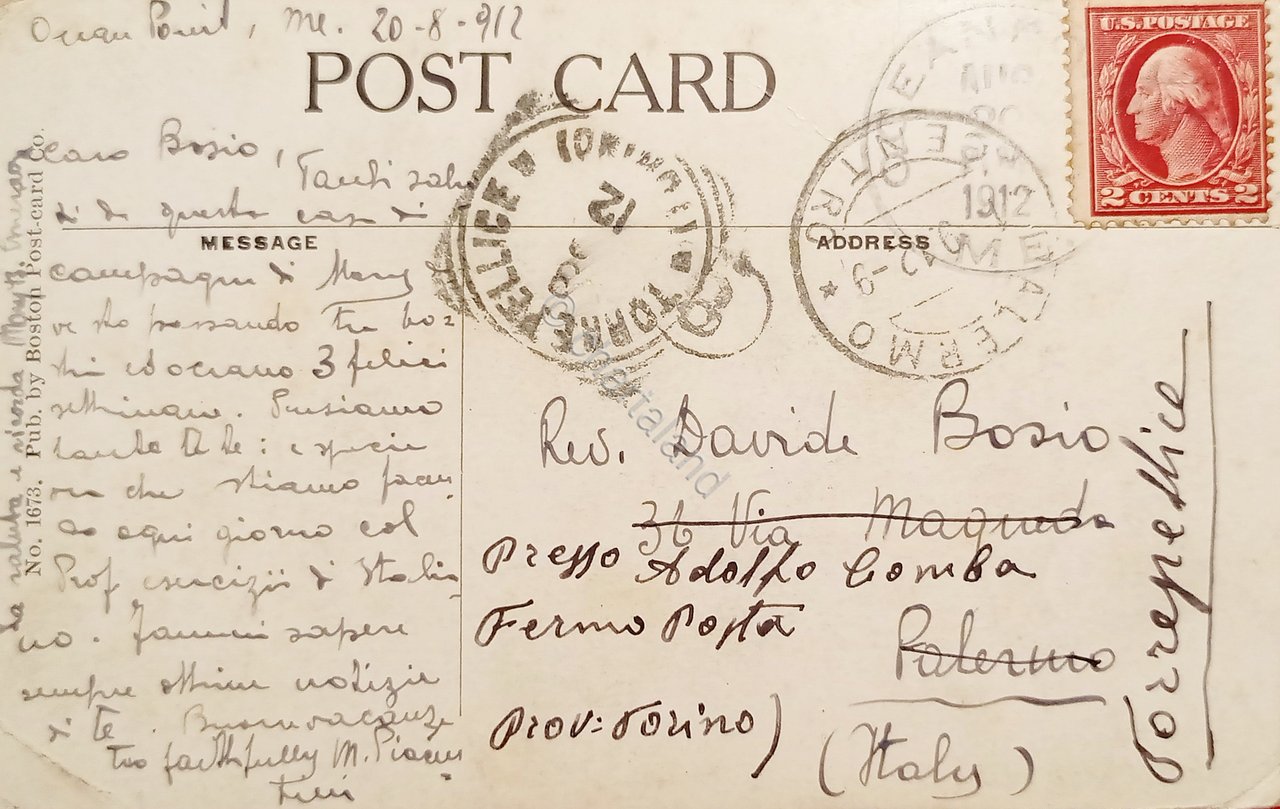 Ocean Point, Me. 20-8-912
POST CARD
U.S. POSTAGE
2 CENTS 2
Caro Bosio,
Tanti salu
ti da questa casa di
MESSAGE
campagna di Mary
ve sto passando tra bo-
schi ed oceano 3 felici
settimane. Pensiamo
tanto a te: e specie
ora che stiamo facen-
do ogni giorno col
Prof esercizii di Italia-
no. Fammi sapere
sempre ottime notizie
di te. Buone vacanze
tuo faithfully M. Piacen-
tini
La saluta e ricorda Mary B. Emerson
No. 1673. Pub. by Boston Post-card Co.
TORRE PELLICE
TORINO
12
8
1912
ME
PALERMO CENTRO
ADDRESS
Rev. Davide Bosio
36 Via Maqueda
Presso Adolfo Comba
Fermo Posta
Palermo
Prov: Torino)
(Italy)
Torrepellice
© chartaland